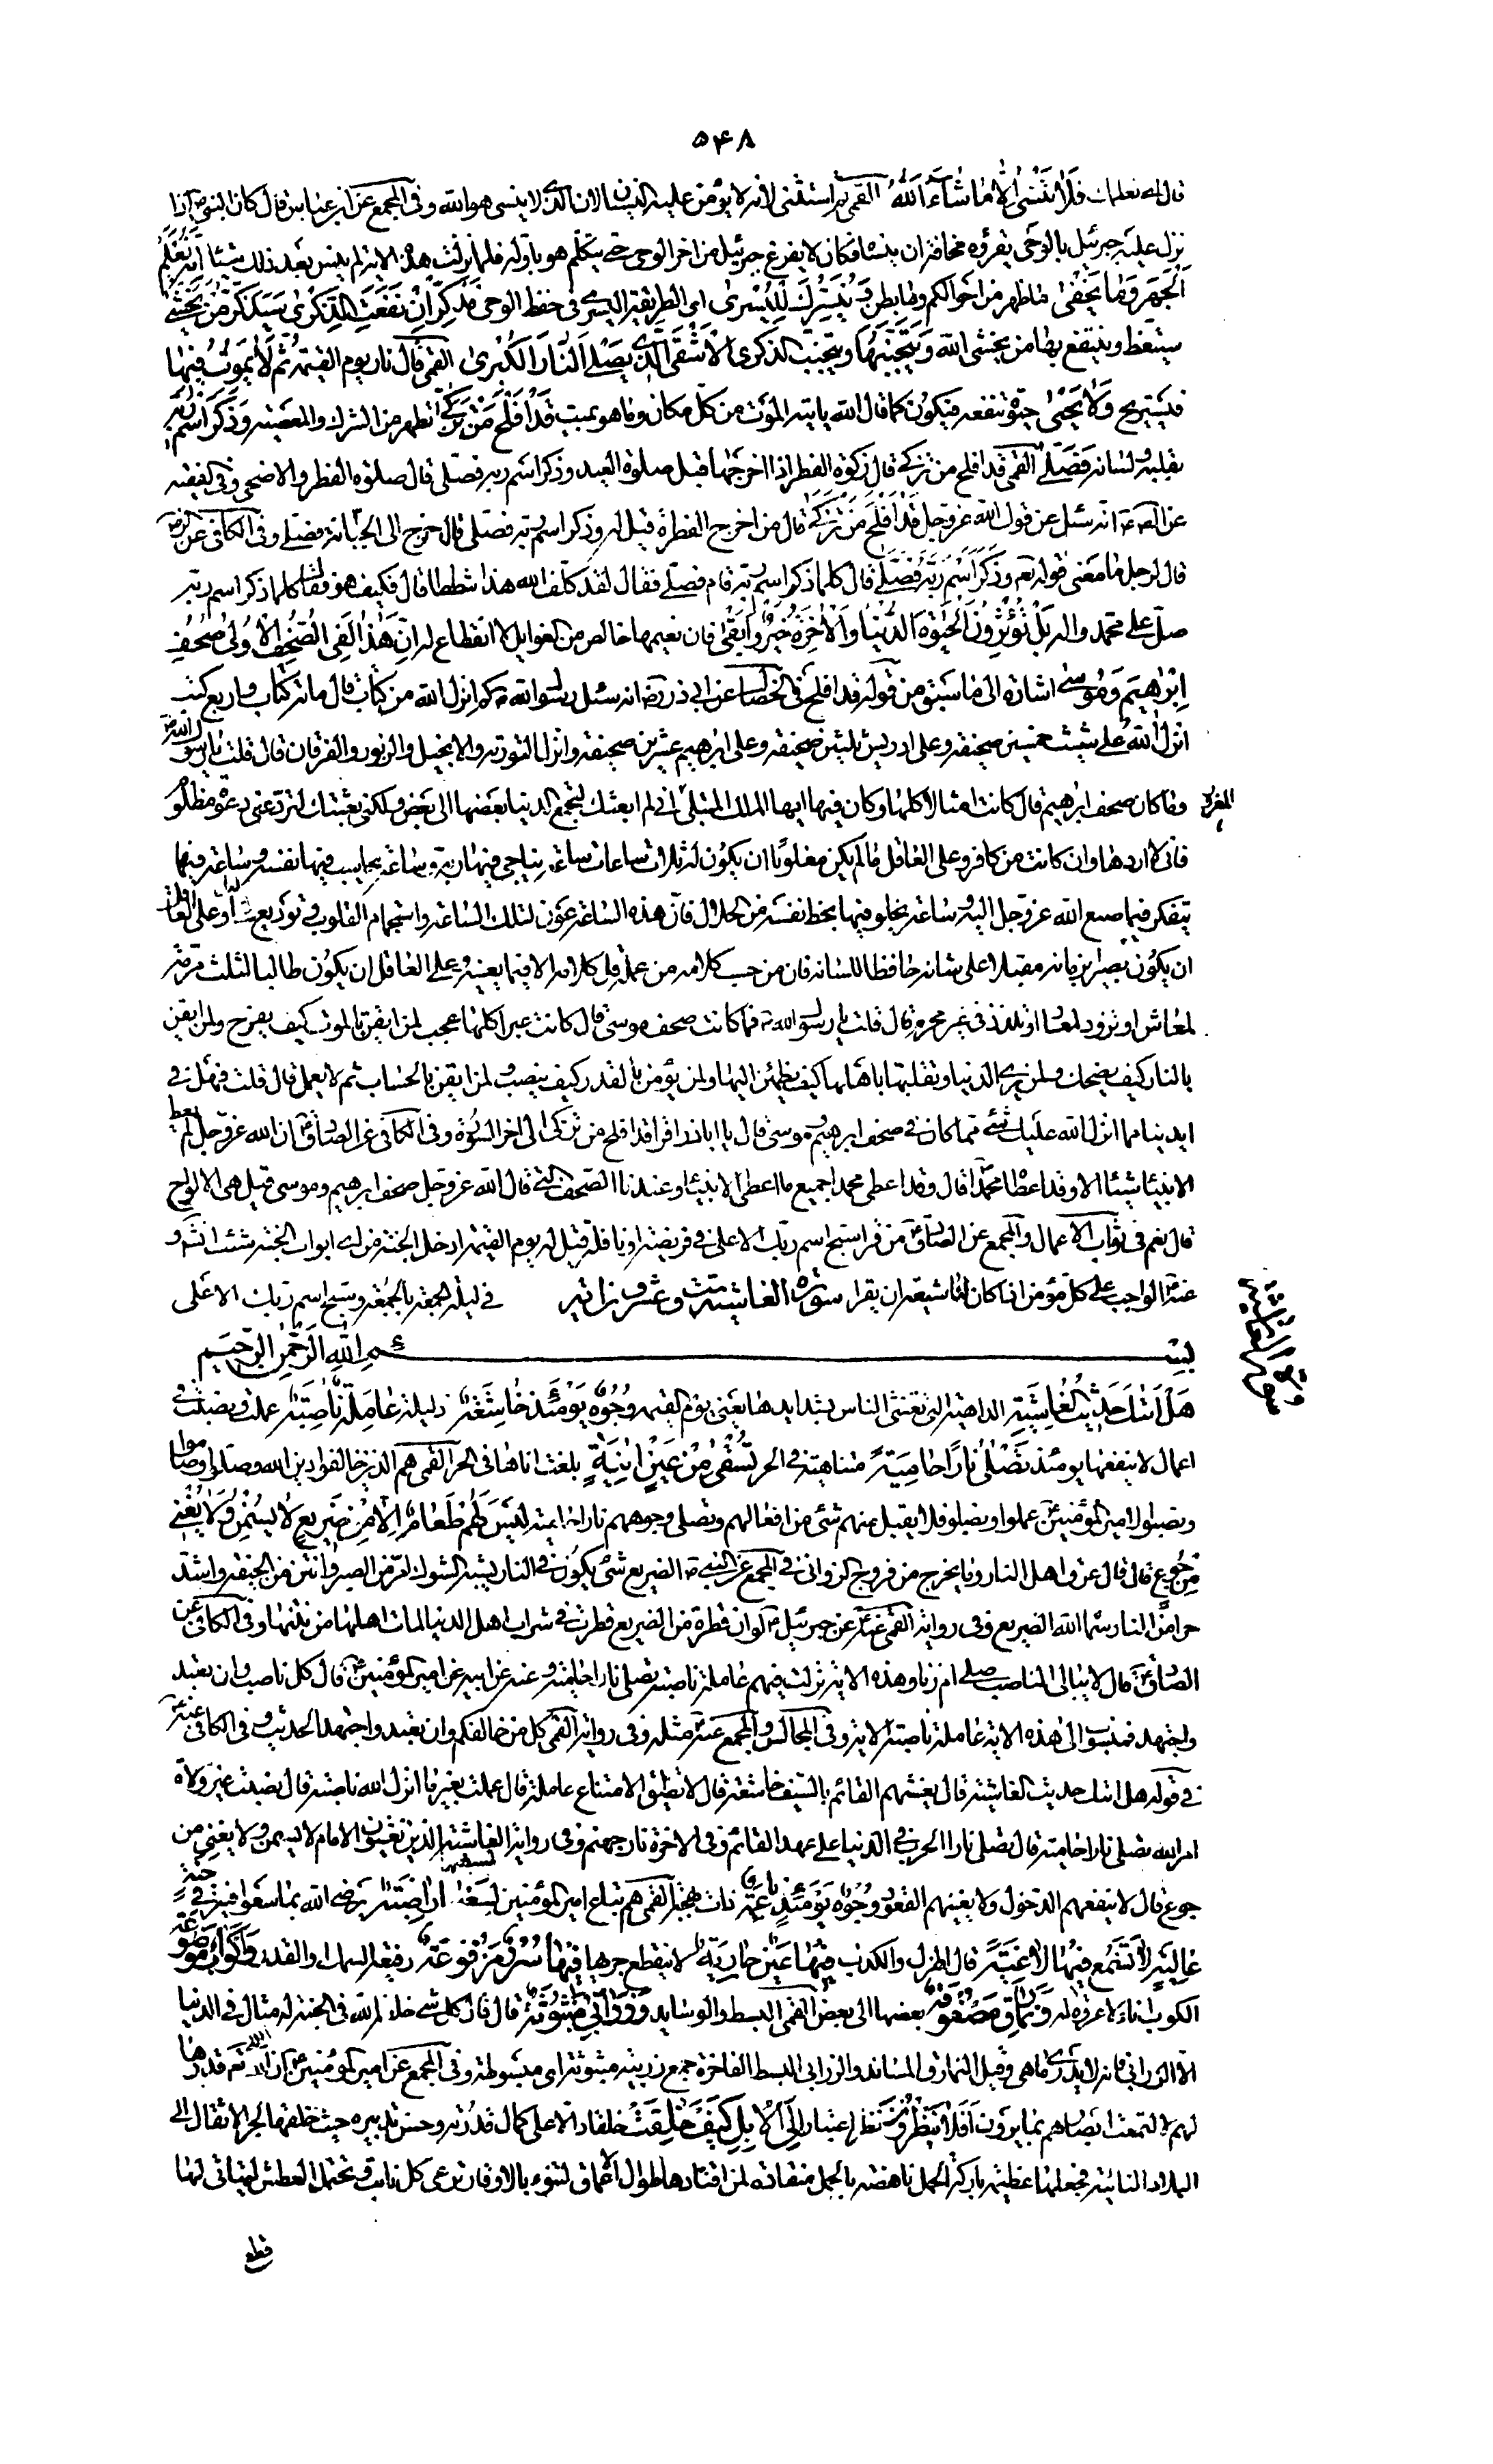 ۵۴۸
قال اي نعلمك فلا تنسى إلا ما شاء الله القمي ثم استثنى لأنه لا يؤمن عليه النسيان لان الذي لا ينسى هو الله وفي المجمع عن ابن عباس قال كان النبي ص اذا
نزل عليه جبرئيل بالوحي يقرؤه مخافة ان ينساه فكان لا يفرغ جبرئيل من اخر الوحي حتى يتكلم هو باوله فلما نزلت هذه الاية لم ينس بعد ذلك شيئا إنه يعلم
الجهر وما يخفى ما ظهر من احوالكم وما بطن ونيسرك لليسرى اي الطريقة اليسرى في حفظ الوحي فذكر إن نفعت الذكرى سيذكر من يخشى
سيتعظ وينتفع بها من يخشى الله ويتجنبها ويتجنب الذكرى الأشقى الذي يصلى النار الكبرى القمي قال نار يوم القيمة ثم لا يموت فيها
فيستريح ولا يحيى حيوة تنفعه فيكون كما قال الله ياتيه الموت من كل مكان وما هو بميت قد أفلح من تزكى تطهر من الشرك والمعصية وذكر اسم ربه
بقلبه ولسانه فصلى القمي قد افلح من تزكى قال زكوة الفطر اذا اخرجها قبل صلوة العيد وذكر اسم ربه فصلى قال صلوة الفطر والاضحى وفي الفقيه
عن الص ع انه سئل عن قول الله عز وجل قد أفلح من تزكى قال من اخرج الفطرة قيل له وذكر اسم ربه فصلى قال خرج الى الجبانة فصلى وفي الكافي عن الرضا
قال لرجل ما معنى قوله تع وذكر اسم ربه فصلى قال كلما ذكر اسم ربه قام فصلى فقال لقد كلف الله هذا شططا قال فكيف هو فقال كلما ذكر اسم ربه
صلى على محمد واله بل تؤثرون الحيوة الدنيا والآخرة خير وأبقى فان نعيمها خالص من الغوايل لا انقطاع له إن هذا لفي الصحف الأولى صحف
إبرهيم وموسى اشارة الى ما سبق من قوله قد افلح في الخصال عن ابي ذر رض انه سئل رسول الله ص كم انزل الله من كتاب قال مائة كتاب واربع كتب
انزل الله على شيث خمسين صحيفة وعلى ادريس ثلثين صحيفة وعلى ابرهيم عشرين صحيفة وانزل التورية والانجيل والزبور والفرقان قال قلت يا رسول الله ص
وما كان صحف ابرهيم قال كانت امثالا كلها وكان فيها ايها الملك المبتلى اني لم ابعثك لتجمع الدنيا بعضها الى بعض ولكني بعثتك لترد عني دعوة مظلوم
المغرور
فاني لا اردها وان كانت من كافر وعلى العاقل ما لم يكن مغلوبا ان يكون له ثلاث ساعات ساعة يناجي فيها ربه وساعة يحاسب فيها نفسه وساعة فيها
يتفكر فيما صنع الله عز وجل اليه وساعة يخلو فيها بحظ نفسه من الحلال فان هذه الساعة عون لتلك الساعة واستجمام القلوب وتوديع لها وعلى العاقل
ان يكون بصيرا بزمانه مقبلا على شانه حافظا للسانه فان من حسب كلامه من عمله قل كلامه الا فيما يعنيه وعلى العاقل ان يكون طالبا لثلث مرمة
لمعاش او تزود لمعاد او تلذذ في غير محرم قال قلت يا رسول الله ص فما كانت صحف موسى قال كانت عبرا كلها عجب لمن ايقن بالموت كيف يفرح ولمن ايقن
بالنار كيف يضحك ولمن يرى الدنيا وتقلبها باهلها كيف يطمئن اليها ولمن يؤمن بالقدر كيف ينصب ولمن ايقن بالحساب ثم لا يعمل قال قلت فهل في
ايدينا مما انزل الله عليك شئ مما كان في صحف ابرهيم وموسى قال يا ابا ذر اقرا قد افلح من تزكى الى اخر السورة وفي الكافي عن الصادق ع ان الله عز وجل لم يعط
الانبياء شيئا الا وقد اعطاه محمدا قال وقد اعطى محمدا جميع ما اعطى الانبياء وعندنا الصحف التي قال الله عز وجل صحف ابرهيم وموسى قيل هي الالواح
قال نعم في ثواب الاعمال والمجمع عن الصادق ع من قرا سبح اسم ربك الاعلى في فريضة او نافلة قيل له يوم القيمة ادخل الجنة من اي ابواب الجنة شئت انشم و
عنه ع الواجب على كل مؤمن اذا كان لنا شيعة ان يقرا سورة الغاشية ست وعشرون اية في ليلة الجمعة بالجمعة وسبح اسم ربك الاعلى
سورة الغاشية
بسم الله الرحمن الرحيم
هل أتيك حديث الغاشية الداهية التي تغشى الناس بشدايدها يعني يوم القيمة وجوه يومئذ خاشعة ذليلة عاملة ناصبة عملت ونصبت في
اعمال لا ينفعها يومئذ تصلى نارا حامية متناهية في الحر تسقى من عين آنية بلغت اناها في الحر القمي هم الذين خالفوا دين الله وصلوا وصاموا
ونصبوا لامير المؤمنين ع عملوا ونصبوا فلا يقبل منهم شئ من افعالهم وتصلى وجوههم نارا حامية ليس لهم طعام إلا من ضريع لا يسمن ولا يغني
من جوع قال قال عرق اهل النار وما يخرج من فروج الزواني في المجمع عن النبي ص الضريع شئ يكون في النار يشبه الشوك امر من الصبر وانتن من الجيفة واشد
حرا من النار سماه الله الضريع وفي رواية القمي عنه ع عن جبرئيل ع لو ان قطرة من الضريع قطرت في شراب اهل الدنيا لمات اهلها من نتنها وفي الكافي عن
الصادق ع قال لا يبالي الناصب صلى ام زنا وهذه الاية نزلت فيهم عاملة ناصبة تصلى نارا حامية وعنه عن ابيه عن امير المؤمنين ع قال كل ناصب وان تعبد
واجتهد فمنسوب الى هذه الاية عاملة ناصبة الاية وفي المجالس والمجمع عنه ع مثله وفي رواية القمي كل من خالفكم وان تعبد واجتهد الحديث وفي الكافي عنه ع
في قوله هل اتيك حديث الغاشية قال يغشيهم القائم بالسيف خاشعة قال لا تطيق الامتناع عاملة قال عملت بغير ما انزل الله ناصبة قال نصبت غير ولاة
امر الله تصلى نارا حامية قال تصلى نارا الحرب في الدنيا على عهد القائم وفي الاخرة نار جهنم وفي رواية الغاشية الذين يغشون الامام لا يسمن ولا يغني من
جوع قال لا ينفعهم الدخول ولا يغنيهم القعود وجوه يومئذ ناعمة ذات بهجة القمي هم اتباع امير المؤمنين لسعيها راضية يرضى الله بما سعوا فيه في جنة
عالية لا تسمع فيها لاغية قال الهزل والكذب فيها عين جارية لا ينقطع جريها فيها سرر مرفوعة رفيعة السمك والقدر وأكواب موضوعة
الكوب اناء لا عروة له ونمارق مصفوفة بعضها الى بعض القمي البسط والوسايد وزرابي مبثوثة قال قال كل شئ خلقه الله في الجنة له مثال في الدنيا
الا الزرابي فانه لا يدرى ما هي وقيل النمارق المساند والزرابي البسط الفاخرة جمع زربية مبثوثة اي مبسوطة وفي المجمع عن امير المؤمنين ع لولا ان الله تع قدرها
لهم لالتمعت ابصارهم بما يرون أفلا ينظرون نظر اعتبار إلى الإبل كيف خلقت خلقا دالا على كمال قدرته وحسن تدبيره حيث خلقها لجر الاثقال الى
البلاد النائية فجعلها عظيمة باركة للحمل ناهضة بالحمل منقادة لمن اقتادها طوال الاعناق لتنوء بالاوقار ترعى كل نابت وتحتمل العطش ليتاتى لها
قطع